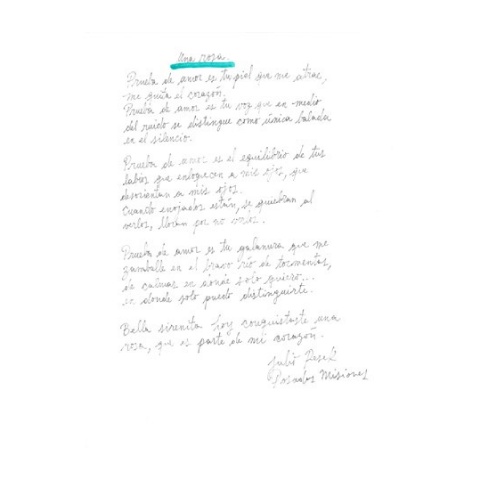 Una rosa
Prueba de amor es tu piel que me atrae,
me quita el corazón.
Prueba de amor es tu voz que en medio
del ruido se distingue como única balada
en el silencio.
Prueba de amor es el equilibrio de tus
labios que enloquecen a mis ojos, que
desorientan a mis ojos.
Cuanto enojados están, se quiebran al
verlos, lloran por no verlos.
Prueba de amor es tu que me
en el bravo río de tormentas,
de en donde solo quiero...
en donde solo puedo distinguirte.
Bella sirenita hoy conquistaste una
rosa, que es parte de mi corazón.
Julio
Posadas Misiones